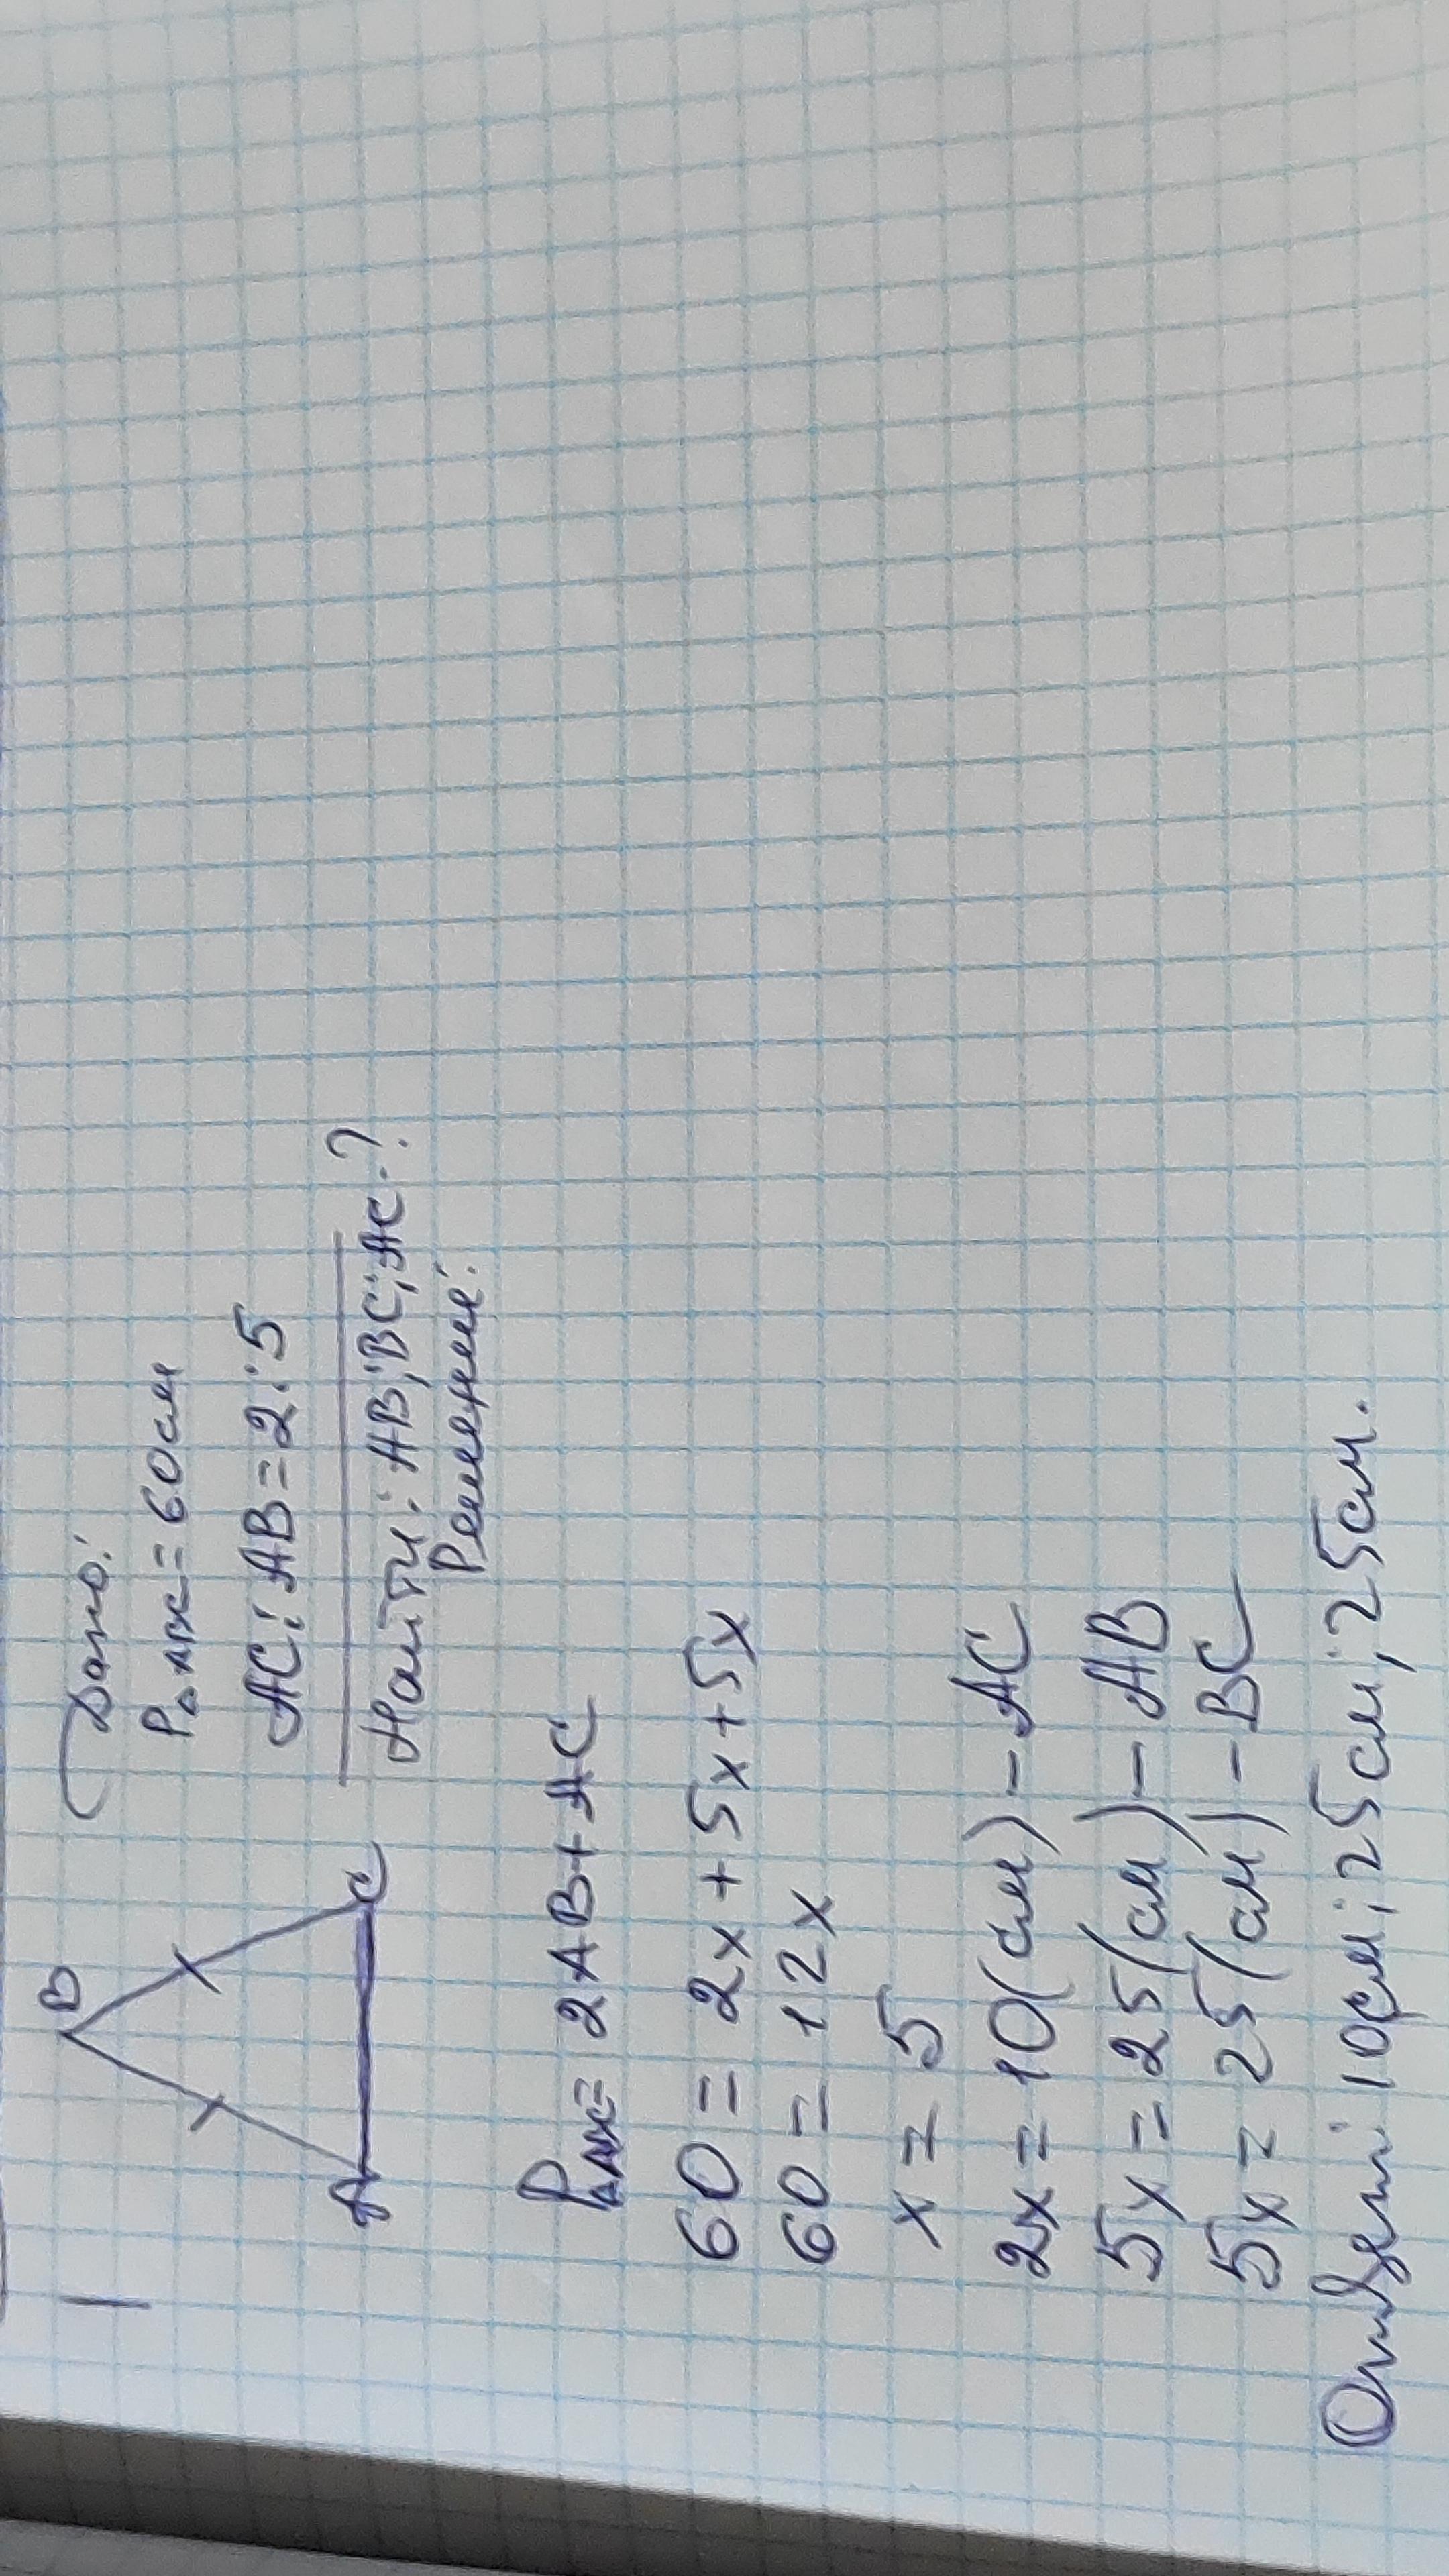 1
B
A
C
Дано:
P△ABC = 60см
AC:AB = 2:5
Найти: AB; BC; AC-?
Решение:
P△ABC = 2AB + AC
60 = 2x + 5x + 5x
60 = 12x
x = 5
2x = 10(см) - AC
5x = 25(см) - AB
5x = 25(см) - BC
Ответ: 10см; 25см; 25см.